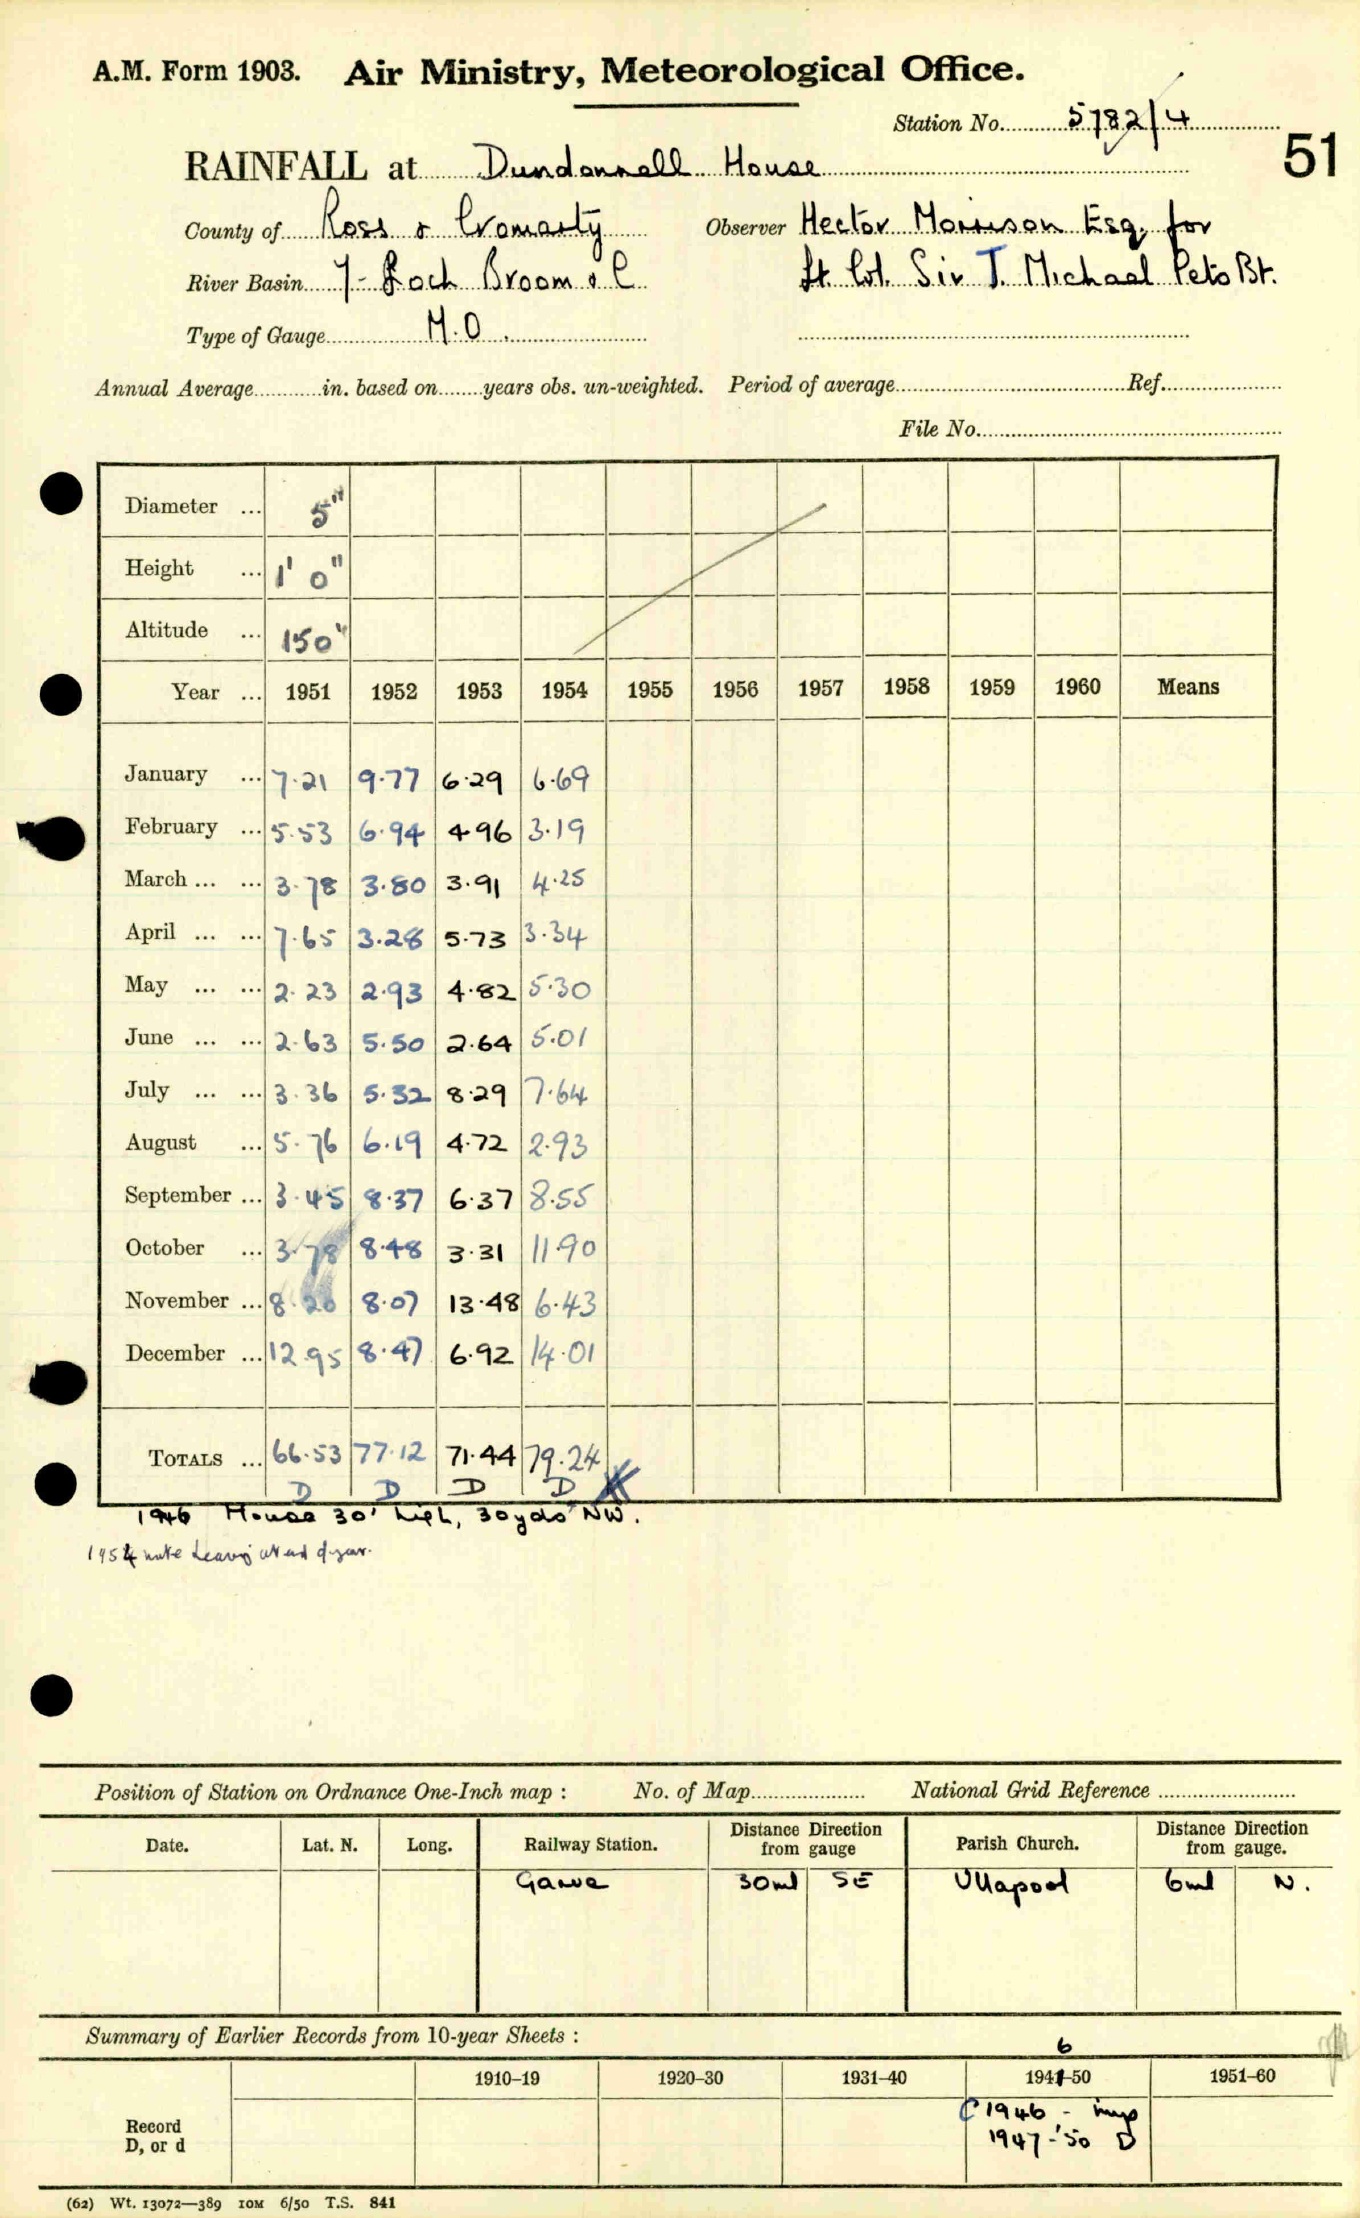 A.M. Form 1903. Air Ministry, Meteorological Office.
Station No. 5782/4
51
RAINFALL at Dundonnell House
County of Ross & Cromarty Observer Hector Morrison Esq. for
River Basin 7-Loch Broom & C Lt. Col. Sir J. Michael Peto Bt.
Type of Gauge M.O.
Annual Average in. based on years obs. un-weighted. Period of average Ref.
File No.
Diameter ... 5"
Height ... 1' 0"
Altitude ... 150"
Year ... 1951 1952 1953 1954 1955 1956 1957 1958 1959 1960 Means
January ... 7.21 9.77 6.29 6.69
February ... 5.53 6.94 4.96 3.19
March ... ... 3.78 3.80 3.91 4.25
April ... ... 7.65 3.28 5.73 3.34
May ... ... 2.23 2.93 4.82 5.30
June ... ... 2.63 5.50 2.64 5.01
July ... ... 3.36 5.32 8.29 7.64
August ... 5.76 6.19 4.72 2.93
September ... 3.45 8.37 6.37 8.55
October ... 3.78 8.48 3.31 11.90
November ... 8.20 8.07 13.48 6.43
December ... 12.95 8.47 6.92 14.01
TOTALS ... 66.53 77.12 71.44 79.24
D D D D
1946 House 30' high, 30yds NW.
1954 note leaving at end of year.
Position of Station on Ordnance One-Inch map : No. of Map National Grid Reference
Date. Lat. N. Long. Railway Station. Distance Direction from gauge Parish Church. Distance Direction from gauge.
Garve 30ml SE Ullapool 6ml N.
Summary of Earlier Records from 10-year Sheets :
6
1910–19 1920–30 1931–40 1941–50 1951–60
Record
D, or d
C 1946 - imp
1947-'50 D
(62) Wt. 13072—389 10M 6/50 T.S. 841